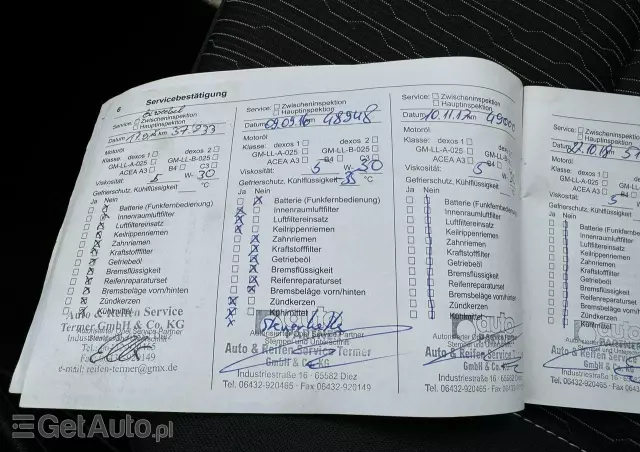 6 Servicebestätigung
Ölwechsel
Service: Zwischeninspektion
Hauptinspektion
Datum km 37
Motoröl
Klasse: dexos 1 dexos 2
GM-LL-A-025 GM-LL-B-025
ACEA A3 B4 C3
Viskosität: 5 W- 30
Gefrierschutz, Kühlflüssigkeit °C
Ja Nein
Batterie (Funkfernbedienung)
Innenraumluftfilter
Luftfiltereinsatz
Keilrippenriemen
Zahnriemen
Kraftstofffilter
Getriebeöl
Bremsflüssigkeit
Reifenreparaturset
Bremsbeläge vorn/hinten
Zündkerzen
Kühlmittel
Auto & Reifen Service
Termer GmbH & Co. KG
Autorisierter Opel Service Partner
Stempel und Unterschrift
Industriestraße 16
e-mail: reifen-termer@gmx.de
Service: Zwischeninspektion
Hauptinspektion
Datum 09.09.16 km 48948
Motoröl
Klasse: dexos 1 dexos 2
GM-LL-A-025 GM-LL-B-025
ACEA A3 B4 C3
Viskosität: 5 W- 30
Gefrierschutz, Kühlflüssigkeit -35 °C
Ja Nein
Batterie (Funkfernbedienung)
Innenraumluftfilter
Luftfiltereinsatz
Keilrippenriemen
Zahnriemen
Kraftstofffilter
Getriebeöl
Bremsflüssigkeit
Reifenreparaturset
Bremsbeläge vorn/hinten
Zündkerzen
Kühlmittel
Autorisierter Opel Service Partner
Stempel und Unterschrift
Auto & Reifen Service Termer
GmbH & Co. KG
Industriestraße 16 - 65582 Diez
Tel. 06432-920465 - Fax 06432-920149
Service: Zwischeninspektion
Hauptinspektion
Datum 10.11.17 km
Motoröl
Klasse: dexos 1 dexos 2
GM-LL-A-025 GM-LL-B-025
ACEA A3 B4 C3
Viskosität: 5 W- 30
Gefrierschutz, Kühlflüssigkeit °C
Ja Nein
Batterie (Funkfernbedienung)
Innenraumluftfilter
Luftfiltereinsatz
Keilrippenriemen
Zahnriemen
Kraftstofffilter
Getriebeöl
Bremsflüssigkeit
Reifenreparaturset
Bremsbeläge vorn/hinten
Zündkerzen
Kühlmittel
auto
PARTNER
Auto & Reifen Service
GmbH & Co. KG
Industriestraße 16 - 65582 Diez
Tel. 06432-920465 - Fax 06432-920149
Service:
Datum
Motoröl
Klasse: dexos 1
GM-LL-A-025
ACEA A3
Viskosität:
Gefrierschutz, Kühlflüssigkeit
Ja Nein
Batterie
Innenraumluftfilter
Luftfiltereinsatz
Keilrippenriemen
Zahnriemen
Kraftstofffilter
Getriebeöl
Bremsflüssigkeit
Reifenreparaturset
Bremsbeläge
Zündkerzen
Kühlmittel
Auto & Reifen
Industriestraße
Tel. 06432-920465
GetAuto.pl